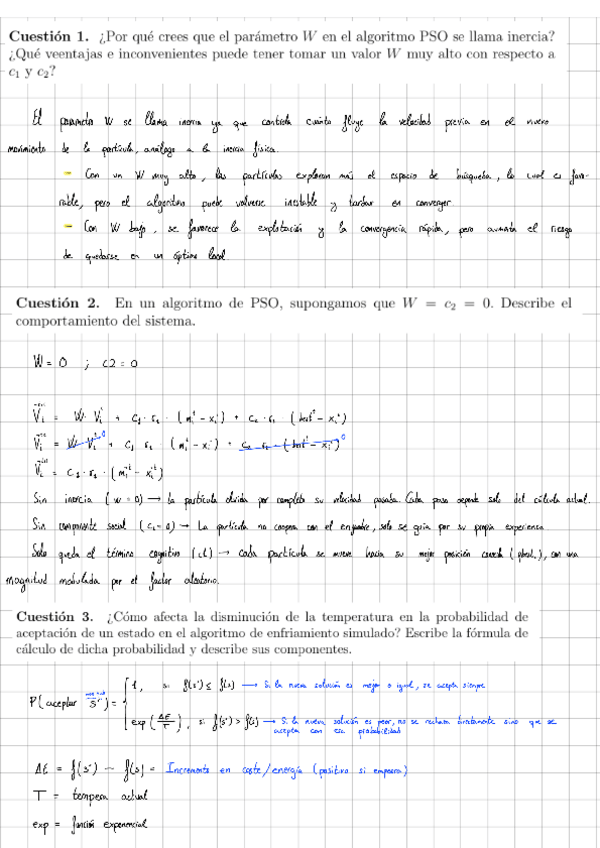 Cuestión 1. ¿Por qué crees que el parámetro W en el algoritmo PSO se llama inercia?
¿Qué veentajas e inconvenientes puede tener tomar un valor W muy alto con respecto a
c₁ y c₂?
El parámetro W se llama inercia ya que controla cuánto fluye la velocidad previa en el nuevo
movimiento de la partícula, análogo a la inercia física.
- Con un W muy alto, las partículas exploran más el espacio de búsqueda, lo cual es favo-
rable, pero el algoritmo puede volverse inestable y tardar en converger
- Con W bajo, se favorece la explotación y la convergencia rápida, pero aumenta el riesgo
de quedarse en un óptimo local
Cuestión 2. En un algoritmo de PSO, supongamos que W = c₂ = 0. Describe el
comportamiento del sistema.
W = 0 ; c2 = 0
Vᵢ = W · Vᵢ + c₁ · r₁ · (mᵢᵗ - xᵢᵗ) + c₂ · r₂ · (bestᵗ - xᵢᵗ)
Vᵢ = W · Vᵢᵗ 0 + c₁ r₁ · (mᵢᵗ - xᵢᵗ) + c₂ · r₂ · (bestᵗ - xᵢᵗ) 0
Vᵢ = c₁ · r₁ · (mᵢᵗ - xᵢᵗ)
Sin inercia (w = 0) → la partícula olvida por completo su velocidad pasada. Cada paso depende solo del cálculo actual.
Sin componente social (c₂ = 0) → La partícula no coopera con el enjambre, solo se guía por su propia experiencia.
Solo queda el término cognitivo (c1) → cada partícula se mueve hacia su mejor posición (pbest), con una
magnitud modulada por el factor aleatorio.
Cuestión 3. ¿Cómo afecta la disminución de la temperatura en la probabilidad de
aceptación de un estado en el algoritmo de enfriamiento simulado? Escribe la fórmula de
cálculo de dicha probabilidad y describe sus componentes.
P(aceptar s') = { 1, si f(s') ≤ f(s) → Si la nueva solución es mejor o igual, se acepta siempre
exp(ΔE/T), si f(s') > f(s) → Si la nueva solución es peor, no se rechaza directamente sino que se
acepta con esa probabilidad
ΔE = f(s') - f(s) = Incremento en coste/energía (positivo si empeora)
T = tempera actual
exp = función exponencial